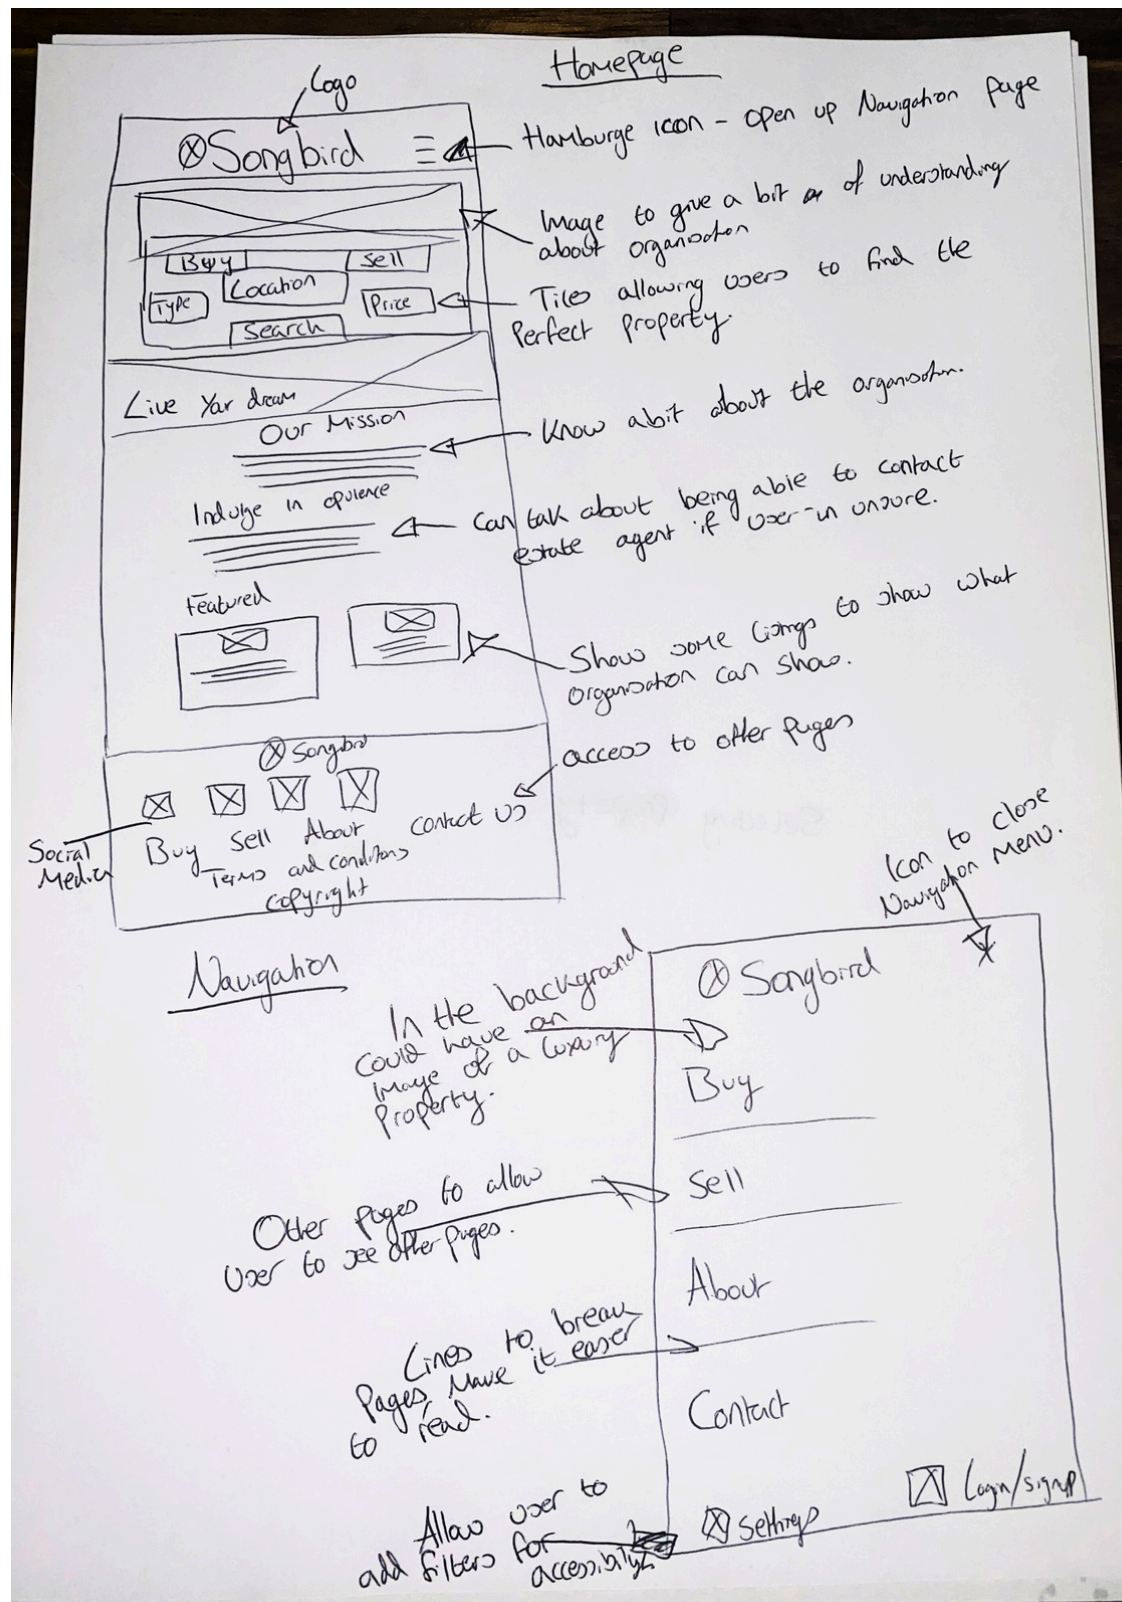 Homepage
Logo
Songbird
Hamburge icon - open up Navigation page
Image to give a bit of understanding
about organisation
Buy
Sell
Type
Location
Price
Search
Tiles allowing users to find the
Perfect property.
Live Your dream
Our Mission
Know a bit about the organisation.
Indulge in opulence
Can talk about being able to contact
estate agent if user
unsure.
Featured
Show some listings to show what
organisation can show.
Songbird
access to other pages
Social
Media
Buy Sell About Contact US
Terms and conditions
copyright
Icon to close
Navigation Menu.
Navigation
Songbird
In the background
could have an
image of a luxury
property.
Buy
Other pages to allow
user to see other pages.
Sell
About
Lines to break
pages, Make it easer
to read.
Contact
Allow user to
add filters for
accessibility
Settings
Login/signup